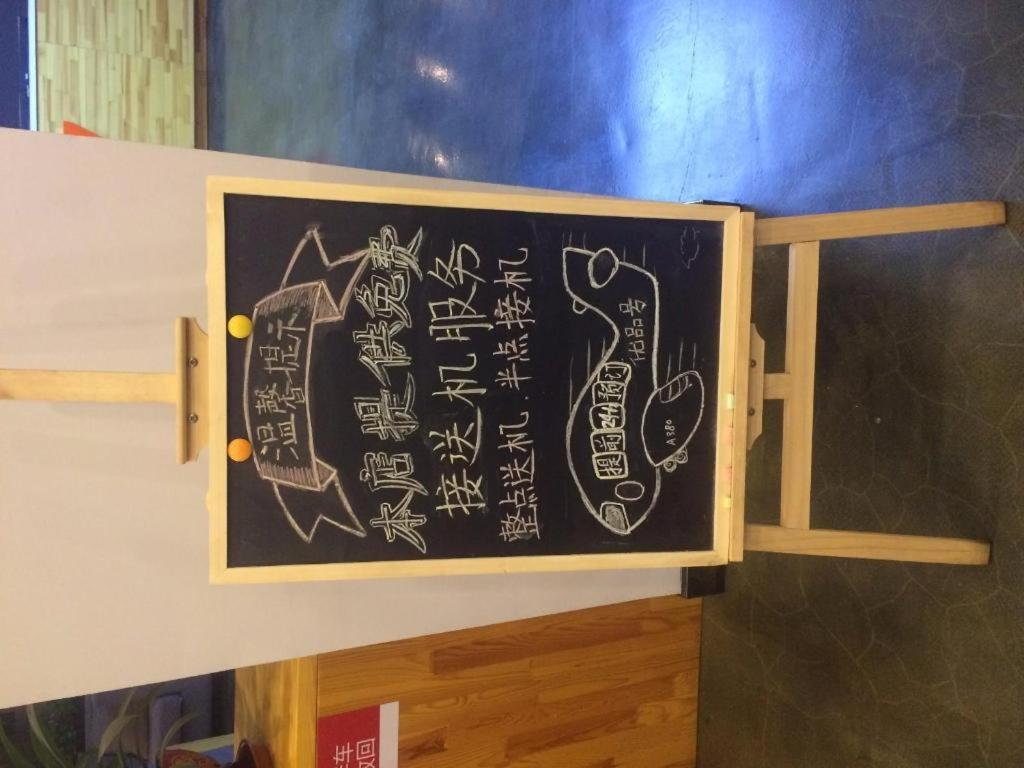 温馨提示
本店提供免费
接送机服务
整点送机.半点接机
提前24H预订
出品号
A380
车
回